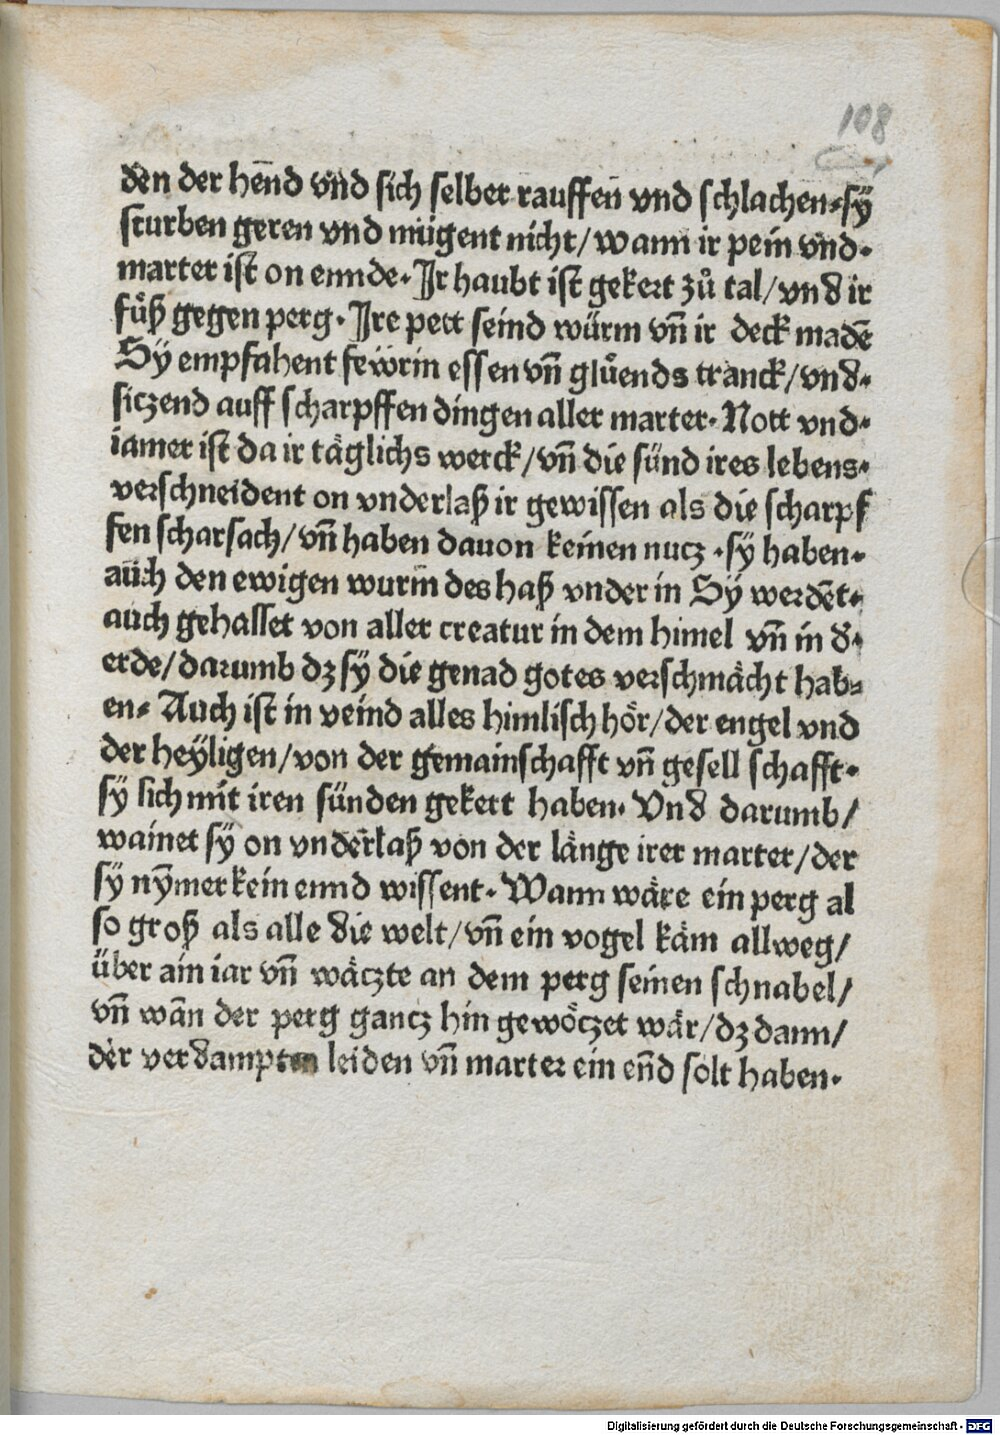 108
den der hend vnd sich selber rauffen vnd schlachen·sÿ
sturben geren vnd mügent nicht/wann ir pein vnd·
marter ist on ennde·Ir haubt ist gekert zů tal/vnd ir
fůß gegen perg·Ire pett seind würm vn̄ ir deck madē
Sÿ empfahent fewrin essen vn̄ glůends tranck/vnd·
siczend auff scharpffen dingen aller marter·Nott vnd·
iamer ist da ir täglichs werck/vn̄ die sünd ires lebens·
verschneident on vnderlaß ir gewissen als die scharpf
fen scharsach/vn̄ haben dauon keinen nucz·sÿ haben·
auch den ewigen wurm des haß vnder in Sÿ werdēt·
auch gehasset von aller creatur in dem himel vn̄ in d̄·
erde/darumb dz sÿ die genad gotes verschmächt hab⸗
en·Auch ist in veind alles himlisch hör/der engel vnd
der heÿligen/von der gemainschafft vn̄ gesell schafft·
sÿ sich mit iren sünden gekert haben·Vnd darumb/
wainet sÿ on vnderlaß von der länge irer marter/der
sÿ nÿmer kein ennd wissent·Wann wäre ein perg al
so groß als alle die welt/vn̄ ein vogel käm allweg/
über ain iar vn̄ wäczte an dem perg seinen schnabel/
vn̄ wān der perg gancz hin gewöczet wär/dz dann/
der verdampten leiden vn̄ marter ein en̄d solt haben·
Digitalisierung gefördert durch die Deutsche Forschungsgemeinschaft - DFG